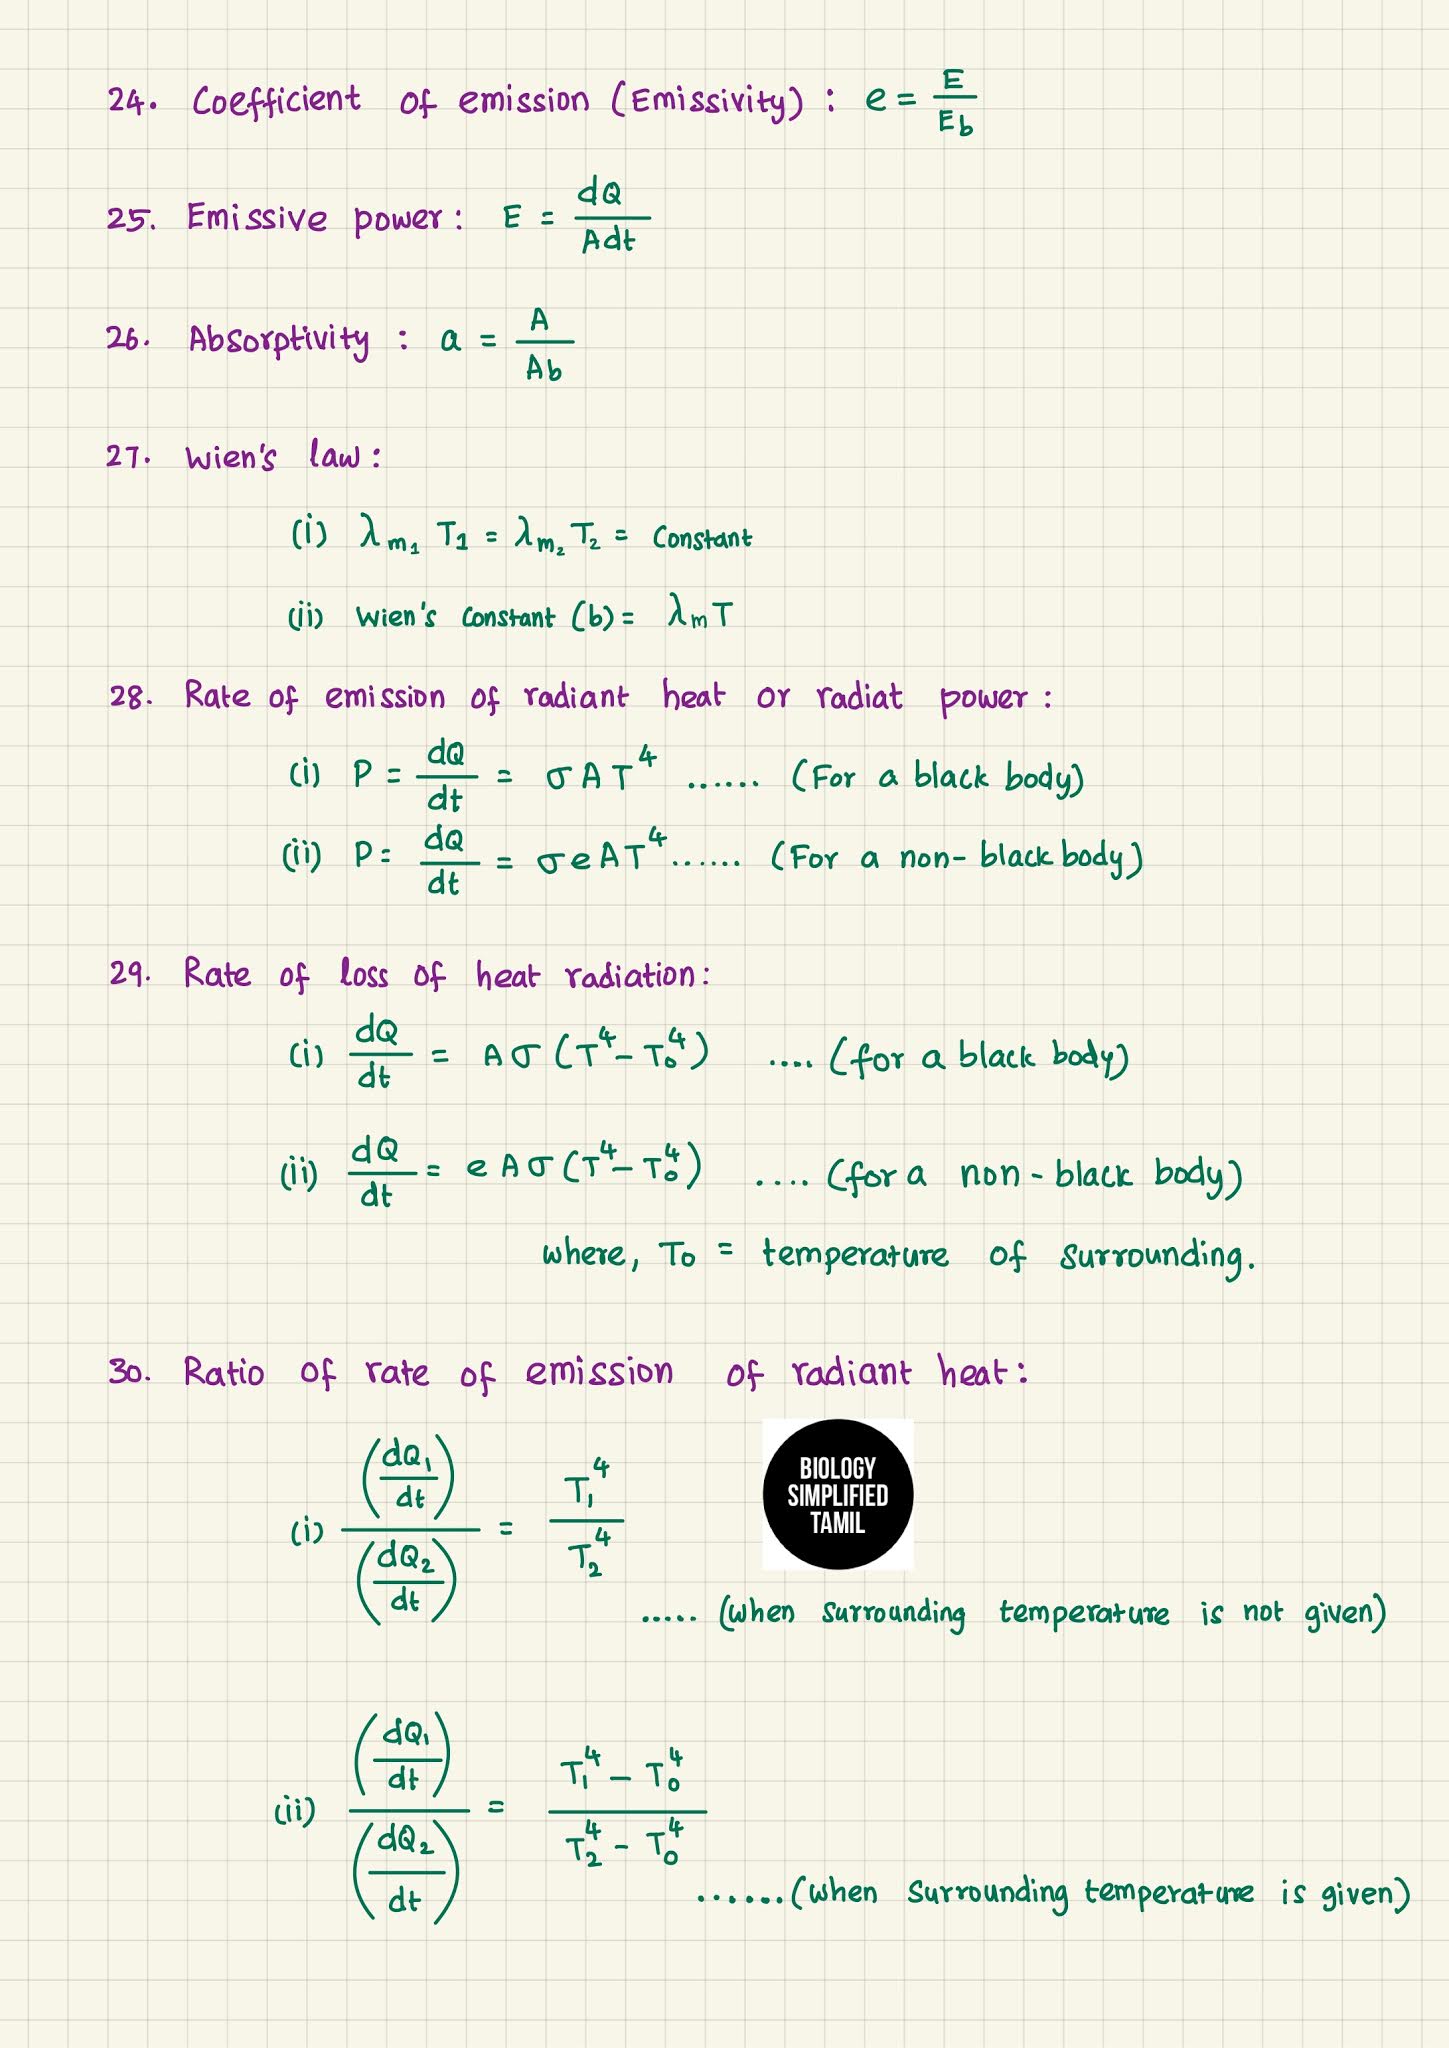 24. Coefficient of emission (Emissivity) : e = E/Eb
25. Emissive power : E = dQ/Adt
26. Absorptivity : a = A/Ab
27. Wien's law :
(i) λm₁ T₁ = λm₂ T₂ = Constant
(ii) Wien's Constant (b) = λm T
28. Rate of emission of radiant heat or radiat power :
(i) P = dQ/dt = σAT⁴ ...... (For a black body)
(ii) P = dQ/dt = σeAT⁴ ...... (For a non-black body)
29. Rate of loss of heat radiation:
(i) dQ/dt = Aσ(T⁴ - T₀⁴) .... (for a black body)
(ii) dQ/dt = eAσ(T⁴ - T₀⁴) .... (for a non-black body)
where, T₀ = temperature of surrounding.
30. Ratio of rate of emission of radiant heat :
(i) (dQ₁/dt)/(dQ₂/dt) = T₁⁴/T₂⁴
BIOLOGY
SIMPLIFIED
TAMIL
..... (when surrounding temperature is not given)
(ii) (dQ₁/dt)/(dQ₂/dt) = (T₁⁴ - T₀⁴)/(T₂⁴ - T₀⁴)
...... (when surrounding temperature is given)